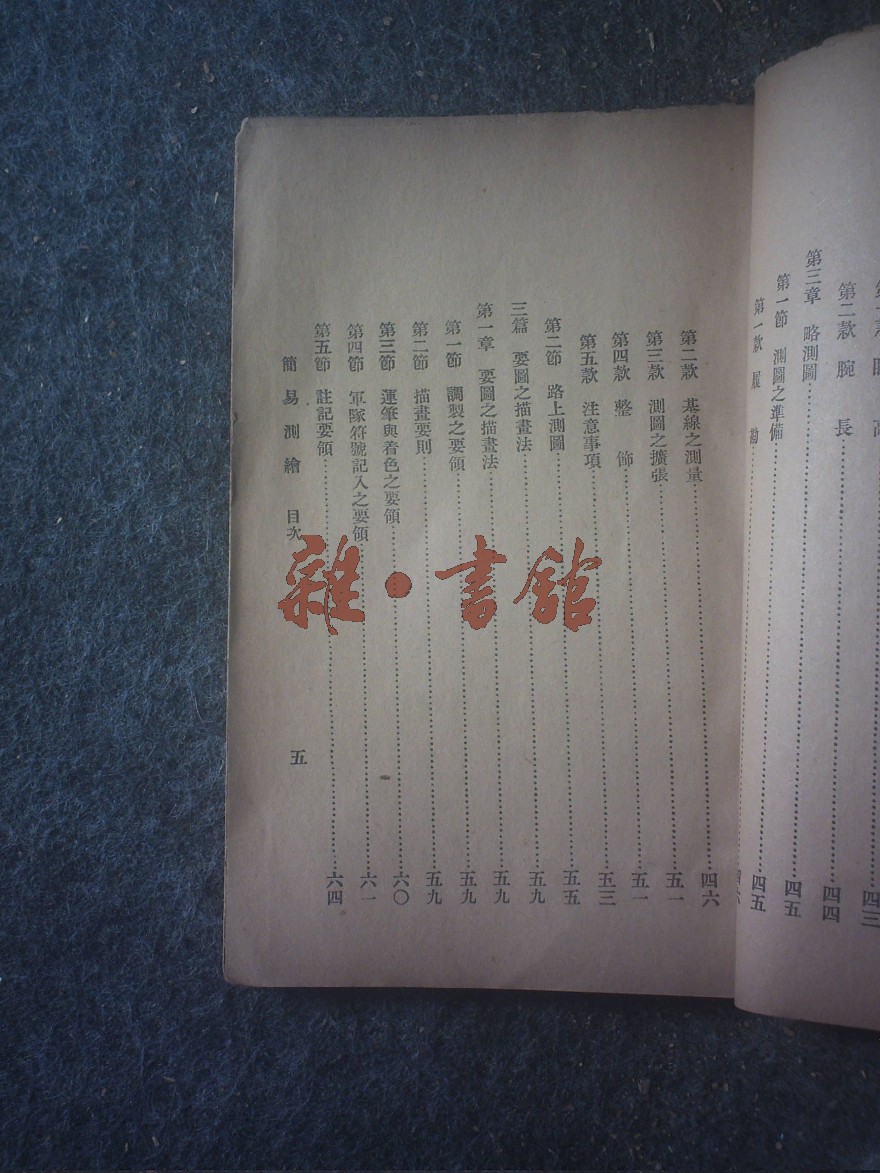 第二款 腕長……四四
第三章 略測圖……四五
第一節 測圖之準備……四五
第二款 基線之測量……四六
第三款 測圖之擴張……五一
第四款 整飾……五一
第五款 注意事項……五三
第二節 路上測圖……五五
三篇 要圖之描畫法……五九
第一章 要圖之描畫法……五九
第一節 調製之要領……五九
第二節 描畫要則……五九
第三節 運筆與着色之要領……六〇
第四節 軍隊符號記入之要領……六一
第五節 註記要領……六四
簡易測繪 目次 五
雜·書館